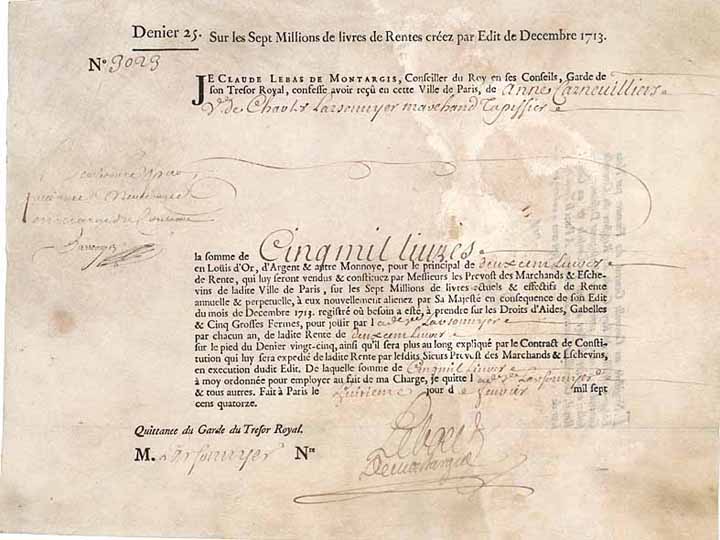 Denier 25. Sur les Sept Millions de livres de Rentes créez par Edit de Decembre 1713.
N° 3023
JE CLAUDE LEBAS DE MONTARGIS, Conseiller du Roy en ses Conseils, Garde de
son Tresor Royal, confesse avoir reçû en cette Ville de Paris, de Anne Carneuilliers
Ve. de Charles Larsonnyer marchand Tapissier
la somme de Cinq mil liures
en Loüis d'Or, d'Argent & autre Monnoye, pour le principal de deux cent Liures
de Rente, qui luy seront vendus & constituez par Messieurs les Prevost des Marchands & Eschevins
de ladite Ville de Paris, sur les Sept Millions de livres actuels & effectifs de Rente
annuelle & perpetuelle, à eux nouvellement alienez par Sa Majesté en consequence de son Edit
du mois de Decembre 1713. registré où besoin a esté, à prendre sur les Droits d'Aides, Gabelles
& Cinq Grosses Fermes, pour joüir par lad. Ve. Larsonnyer
par chacun an, de ladite Rente de deux cent Liures
sur le pied du Denier vingt-cinq, ainsi qu'il sera plus au long expliqué par le Contract de Constitution
qui luy sera expedié de ladite Rente par lesdits Sieurs Prevost des Marchands & Eschevins,
en execution dudit Edit. De laquelle somme de Cinq mil Liures
à moy ordonnée pour employer au fait de ma Charge, je quitte lad. Ve. Larsonnyer
& tous autres. Fait à Paris le jour de feurier mil sept
cens quatorze.
Quittance du Garde du Tresor Royal.
M. Larsonnyer Nre